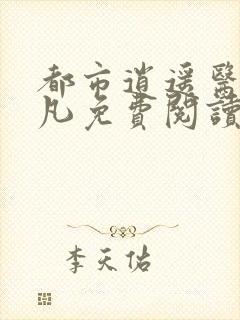 都市逍遥醫
凡免費閱讀
李天佑